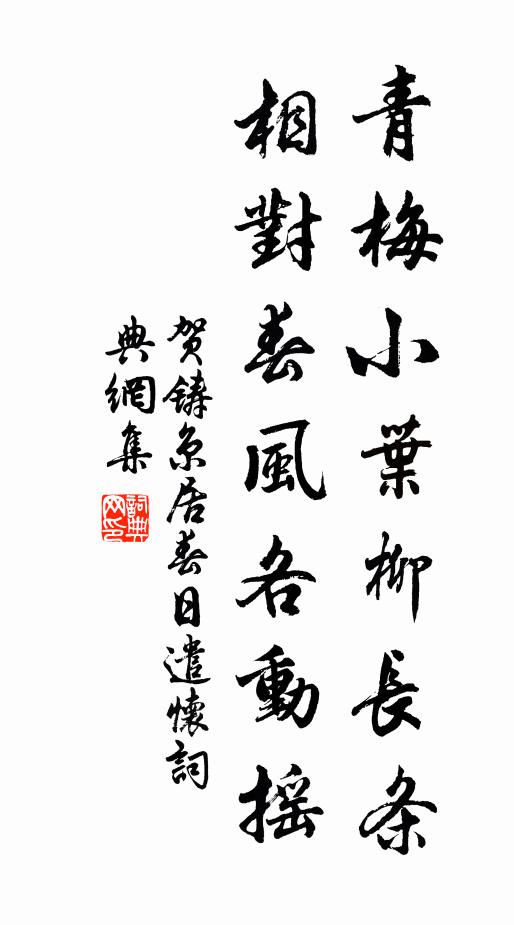 青梅小葉柳長条
相對春風各動搖
贺鑄京居春日遣懷詞
典網集
詞典网印